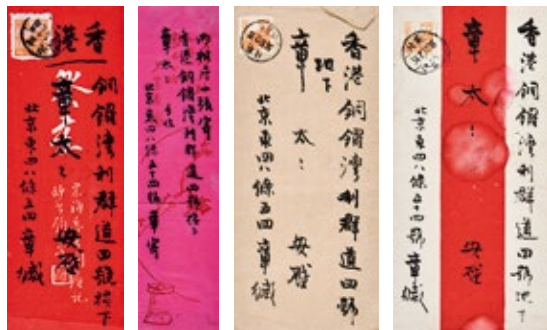 香港
銅鑼灣利群道四號樓下
章太〻 安啓
北京東四八條五四 章緘
內相片一張寄
香港銅鑼灣利群道四號樓下
章太〻
北京東四八條五十四號章寄
香港銅鑼灣利群道四號
地下
章太〻 安啓
北京東四八條五四 章緘
香港銅鑼灣利群道四號地下
章太〻 安啓
北京東四八條五十四號 章緘